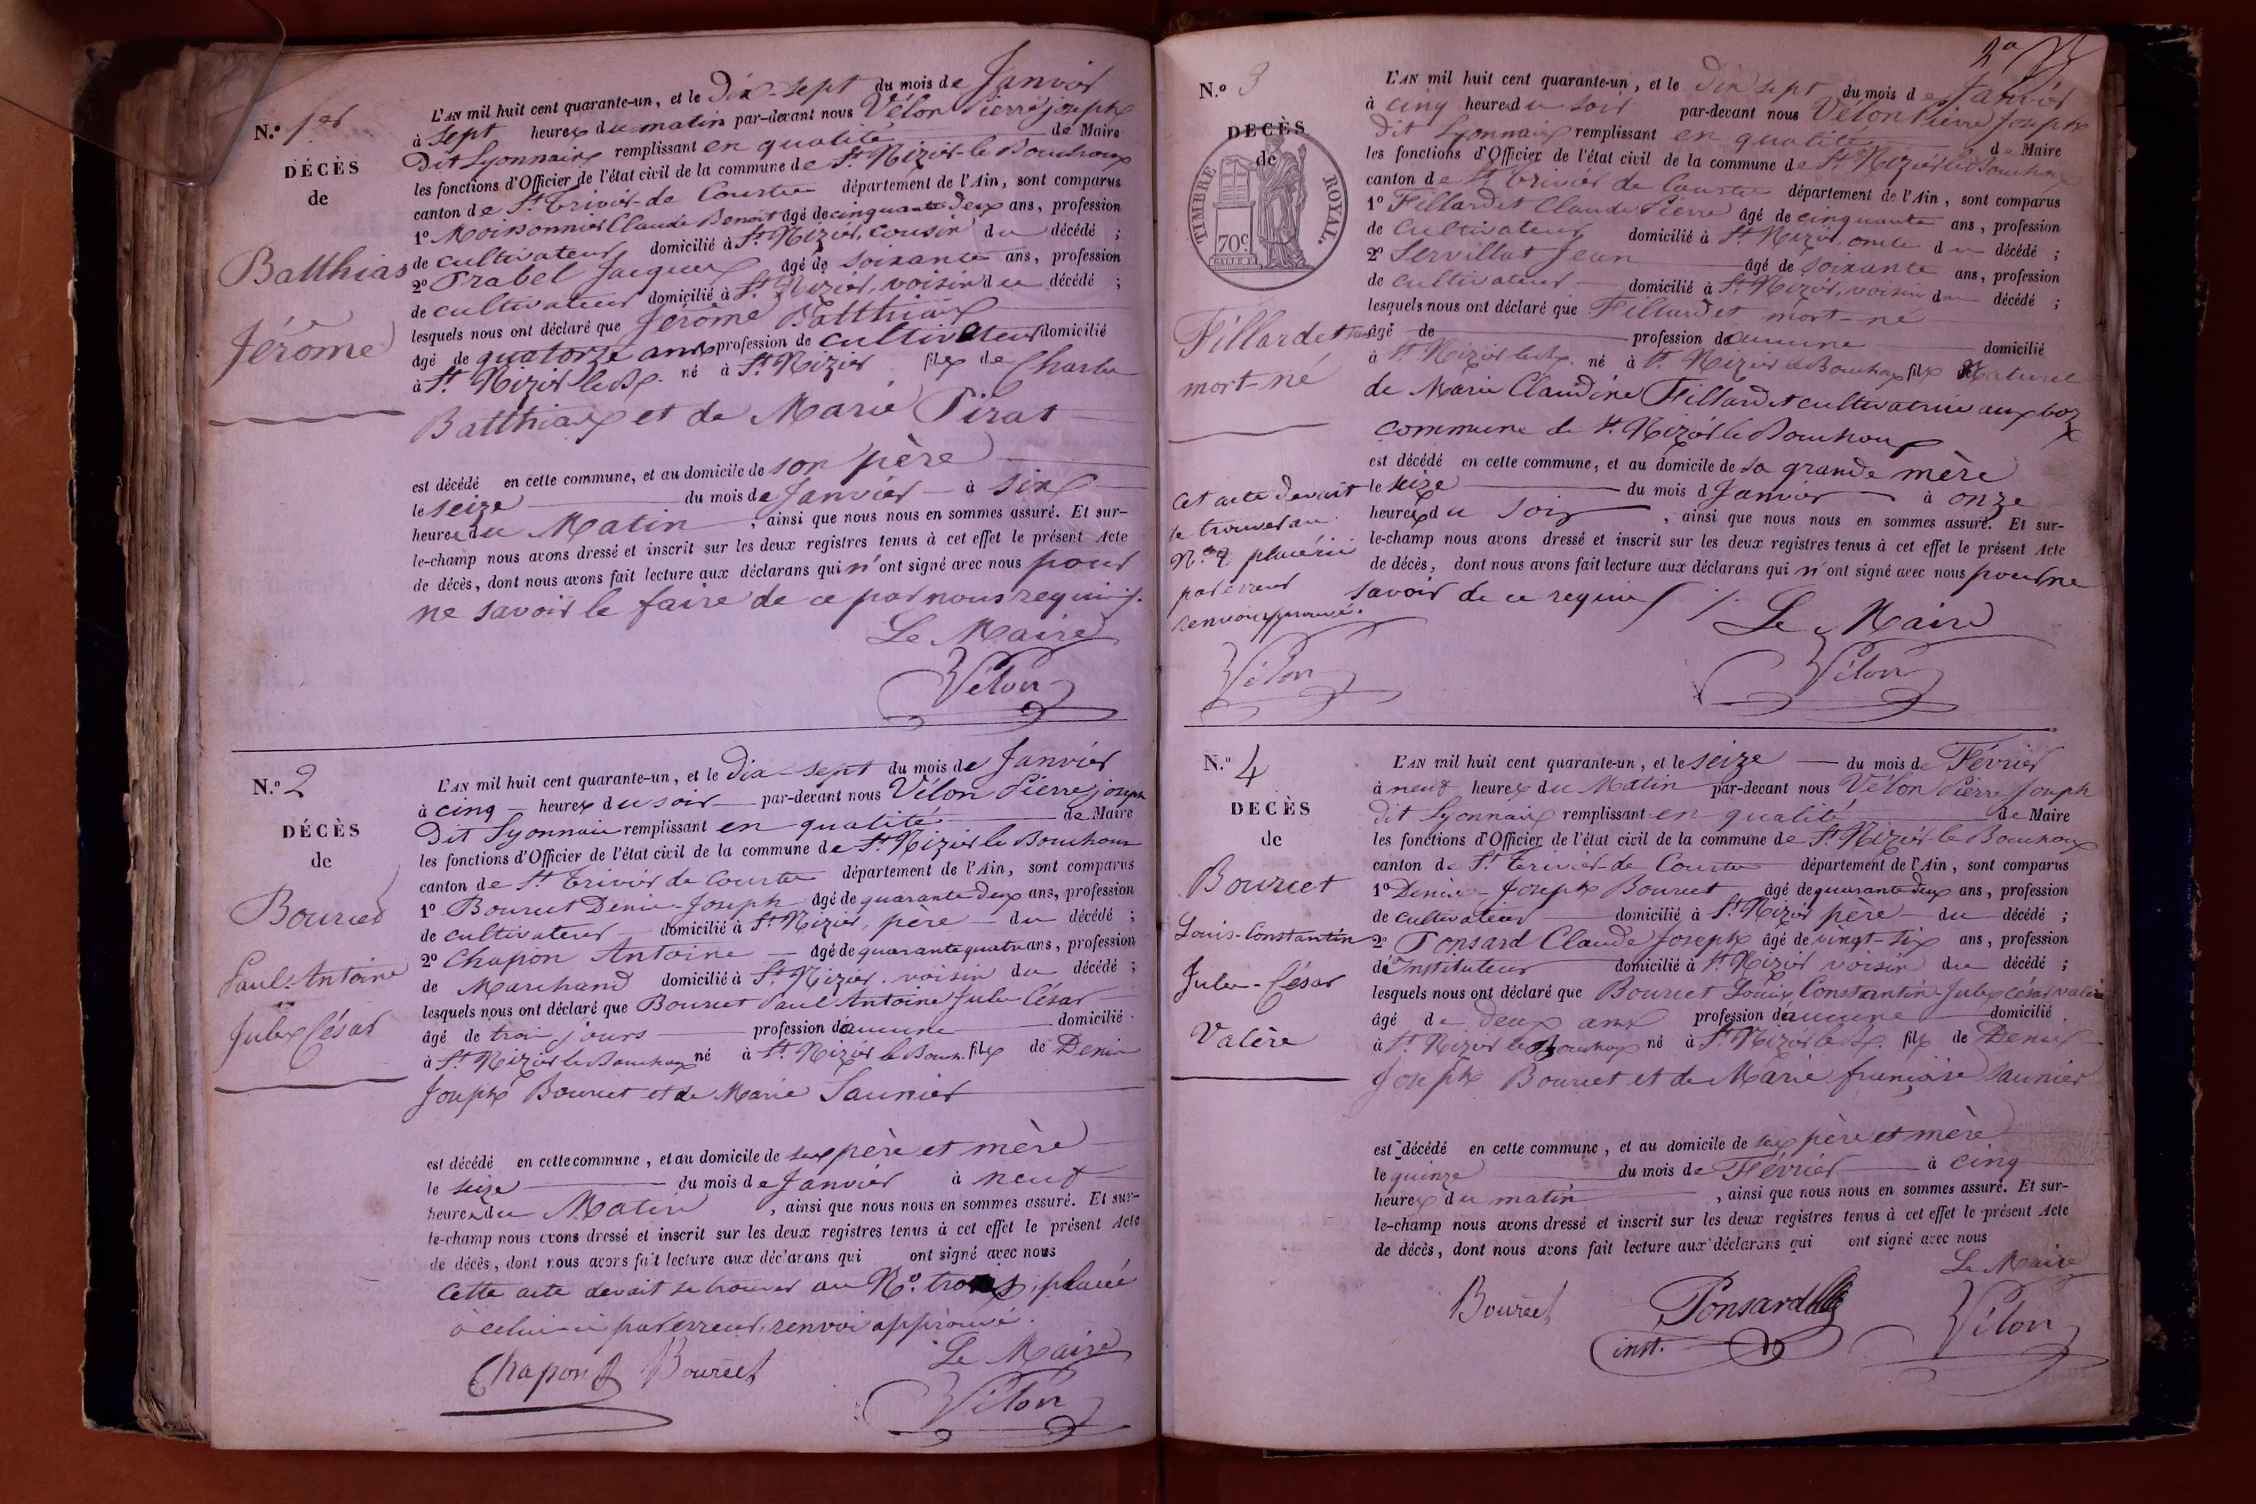 N.º 1er
DÉCÈS
de
Batthias
Jérôme
L'AN mil huit cent quarante-un, et le Dix-sept du mois de Janvier
à sept heures du matin par-devant nous Vélon Pierre joseph
Dit Lyonnais remplissant en qualité de Maire
les fonctions d'Officier de l'état civil de la commune de St Nizier-le Bouchoux
canton de St Trivier-de Courtes département de l'Ain, sont comparus
1º Moissonnier Claude Benoit âgé de cinquante Deux ans, profession
de cultivateur domicilié à St Nizier, cousin du décédé ;
2º Prabel Jacques âgé de soixante ans, profession
de cultivateur domicilié à St Nizier, voisin du décédé ;
lesquels nous ont déclaré que Jérôme Batthias
âgé de quatorze ans profession de cultivateur domicilié
à St Nizier le B. né à St Nizier fils de Charles
Batthias et de Marie Pirat
est décédé en cette commune, et au domicile de son père
le seize du mois de Janvier à six
heures du Matin, ainsi que nous nous en sommes assuré. Et sur-
le-champ nous avons dressé et inscrit sur les deux registres tenus à cet effet le présent Acte
de décès, dont nous avons fait lecture aux déclarans qui n'ont signé avec nous pour
ne savoir le faire de ce par nous requis.
Le Maire
Vélon
N.º 2
DÉCÈS
de
Bourcet
Paul-Antoine
Jules César
L'AN mil huit cent quarante-un, et le Dix-sept du mois de Janvier
à cinq heures du soir par-devant nous Vélon Pierre joseph
Dit Lyonnais remplissant en qualité de Maire
les fonctions d'Officier de l'état civil de la commune de St Nizier le Bouchoux
canton de St Trivier de Courtes département de l'Ain, sont comparus
1º Bourcet Denis-Joseph âgé de quarante Deux ans, profession
de cultivateur domicilié à St Nizier, père du décédé ;
2º Chapon Antoine âgé de quarante quatre ans, profession
de Marchand domicilié à St Nizier, voisin du décédé ;
lesquels nous ont déclaré que Bourcet Paul Antoine Jules César
âgé de trois jours profession d'aucune domicilié
à St Nizier le Bouchoux né à St Nizier le Bouch. fils de Denis
Joseph Bourcet et de Marie Saunier
est décédé en cette commune, et au domicile de ses père et mère
le seize du mois de Janvier à neuf
heures du Matin, ainsi que nous nous en sommes assuré. Et sur-
le-champ nous avons dressé et inscrit sur les deux registres tenus à cet effet le présent Acte
de décès, dont nous avons fait lecture aux déclarans qui ont signé avec nous
Cette acte devait se trouver au Nº. trois, placée
à celui-ci par erreur, renvoi approuvé.
Le Maire
Chapon Bourcet
Vélon
2
N.º 3
DECÈS
de
TIMBRE ROYAL.
70c
Fillardet
mort-né
Cet acte devait
se trouver au
Nº 2, placé ici
par erreur
renvoi approuvé.
Vélon
L'AN mil huit cent quarante-un, et le Dix sept du mois de Janvier
à cinq heures du soir par-devant nous Vélon Pierre Joseph
Dit Lyonnais remplissant en qualité de Maire
les fonctions d'Officier de l'état civil de la commune de St Nizier le Bouchoux
canton de St Trivier de Courtes département de l'Ain, sont comparus
1º Fillardet Claude Pierre âgé de cinquante ans, profession
de Cultivateur domicilié à St Nizier, oncle du décédé ;
2º Servillat Jean âgé de soixante ans, profession
de cultivateur domicilié à St Nizier, voisin du décédé ;
lesquels nous ont déclaré que Fillardet mort-né
âgé de profession d'aucune domicilié
à St Nizier le B. né à St Nizier le Bouchoux fils Naturel
de Marie Claudine Fillardet cultivatrice aux boz
commune de St Nizier le Bouchoux
est décédé en cette commune, et au domicile de sa grande mère
le seize du mois d Janvier à onze
heures du soir, ainsi que nous nous en sommes assuré. Et sur-
le-champ nous avons dressé et inscrit sur les deux registres tenus à cet effet le présent Acte
de décès, dont nous avons fait lecture aux déclarans qui n'ont signé avec nous pour ne
savoir de ce requis
Le Maire
Vélon
N.º 4
DÉCÈS
de
Bourcet
Louis-Constantin
Jules-César
Valère
L'AN mil huit cent quarante-un, et le seize du mois de Février
à neuf heures du Matin par-devant nous Vélon Pierre Joseph
dit Lyonnais remplissant en qualité de Maire
les fonctions d'Officier de l'état civil de la commune de St Nizier le Bouchoux
canton de St Trivier-de Courtes département de l'Ain, sont comparus
1º Denis-Joseph Bourcet âgé de quarante deux ans, profession
de cultivateur domicilié à St Nizier père du décédé ;
2º Ponsard Claude Joseph âgé de vingt-six ans, profession
d'Instituteur domicilié à St Nizier voisin du décédé ;
lesquels nous ont déclaré que Bourcet Louis Constantin Jules César Valère
âgé de Deux ans profession d'aucune domicilié
à St Nizier le Bouchoux né à St Nizier le B. fils de Denis
Joseph Bourcet et de Marie françoise Saunier
est décédé en cette commune, et au domicile de ses père et mère
le quinze du mois de Février à cinq
heures du matin, ainsi que nous nous en sommes assuré. Et sur-
le-champ nous avons dressé et inscrit sur les deux registres tenus à cet effet le présent Acte
de décès, dont nous avons fait lecture aux déclarans qui ont signé avec nous
Le Maire
Bourcet Ponsard
inst.
Vélon